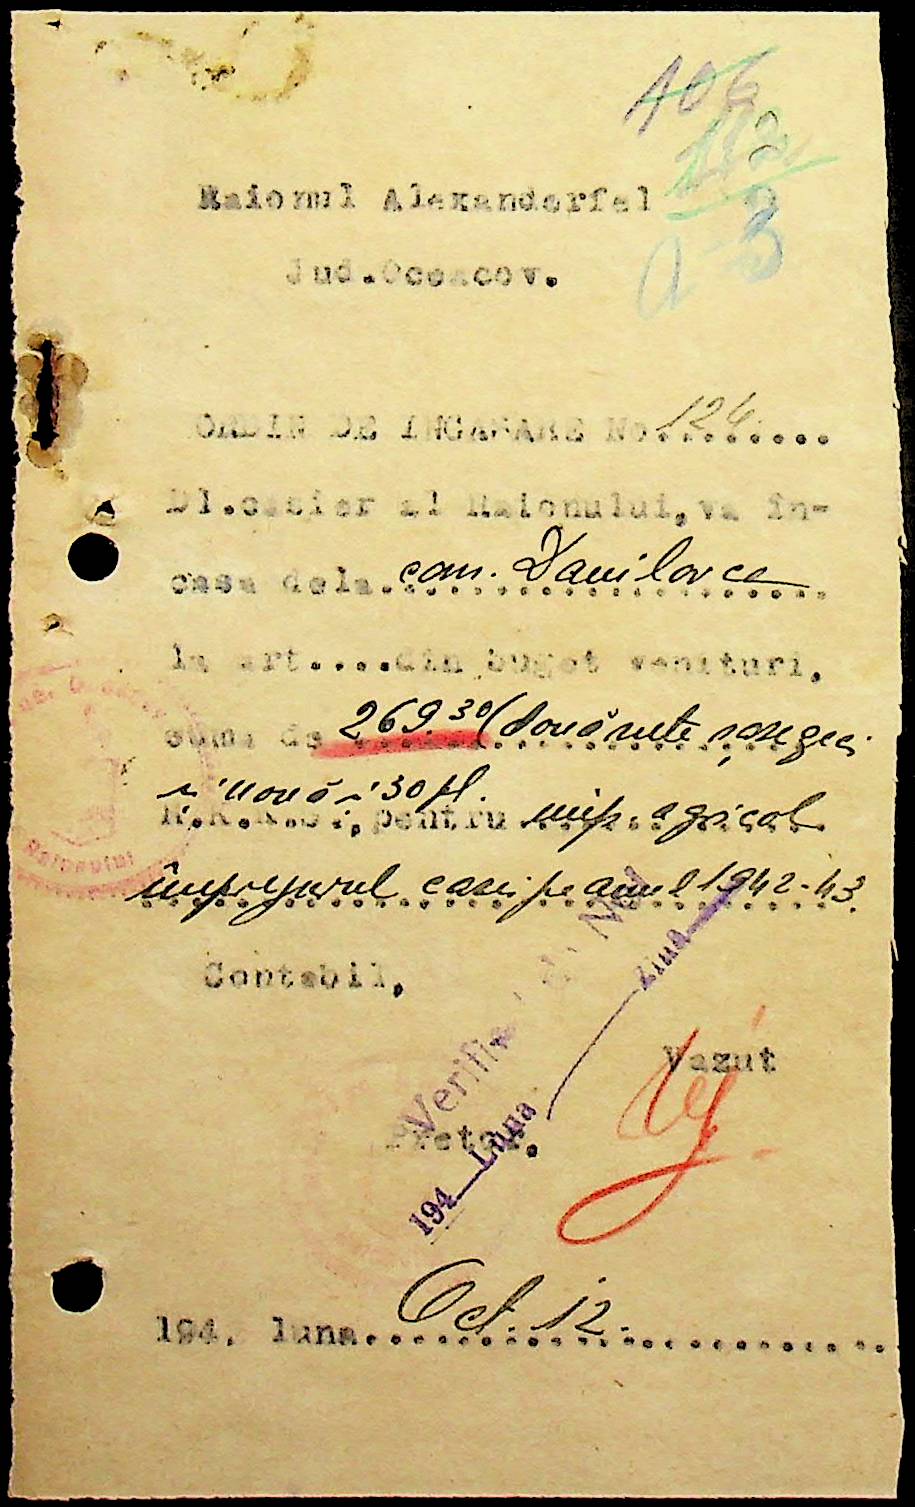 406
112
a-3
Raionul Alexandorfel
Jud.Oceacov.
ORDIN DE INCASARE No.124.......
Dl.casier al Raionului,va în-
casa dela.com. Danilovca
la art....din buget venituri,
suma de 269.30 (două sute șasezeci
și nouă și 30 pf.
R.K.K.S.,pentru imp. agricol
împrejurul casei pe anul 1942-43.
Contabil,
Verific No
194 Luna Ziua
Vazut
Pretor.
194. luna.Oct. 12.